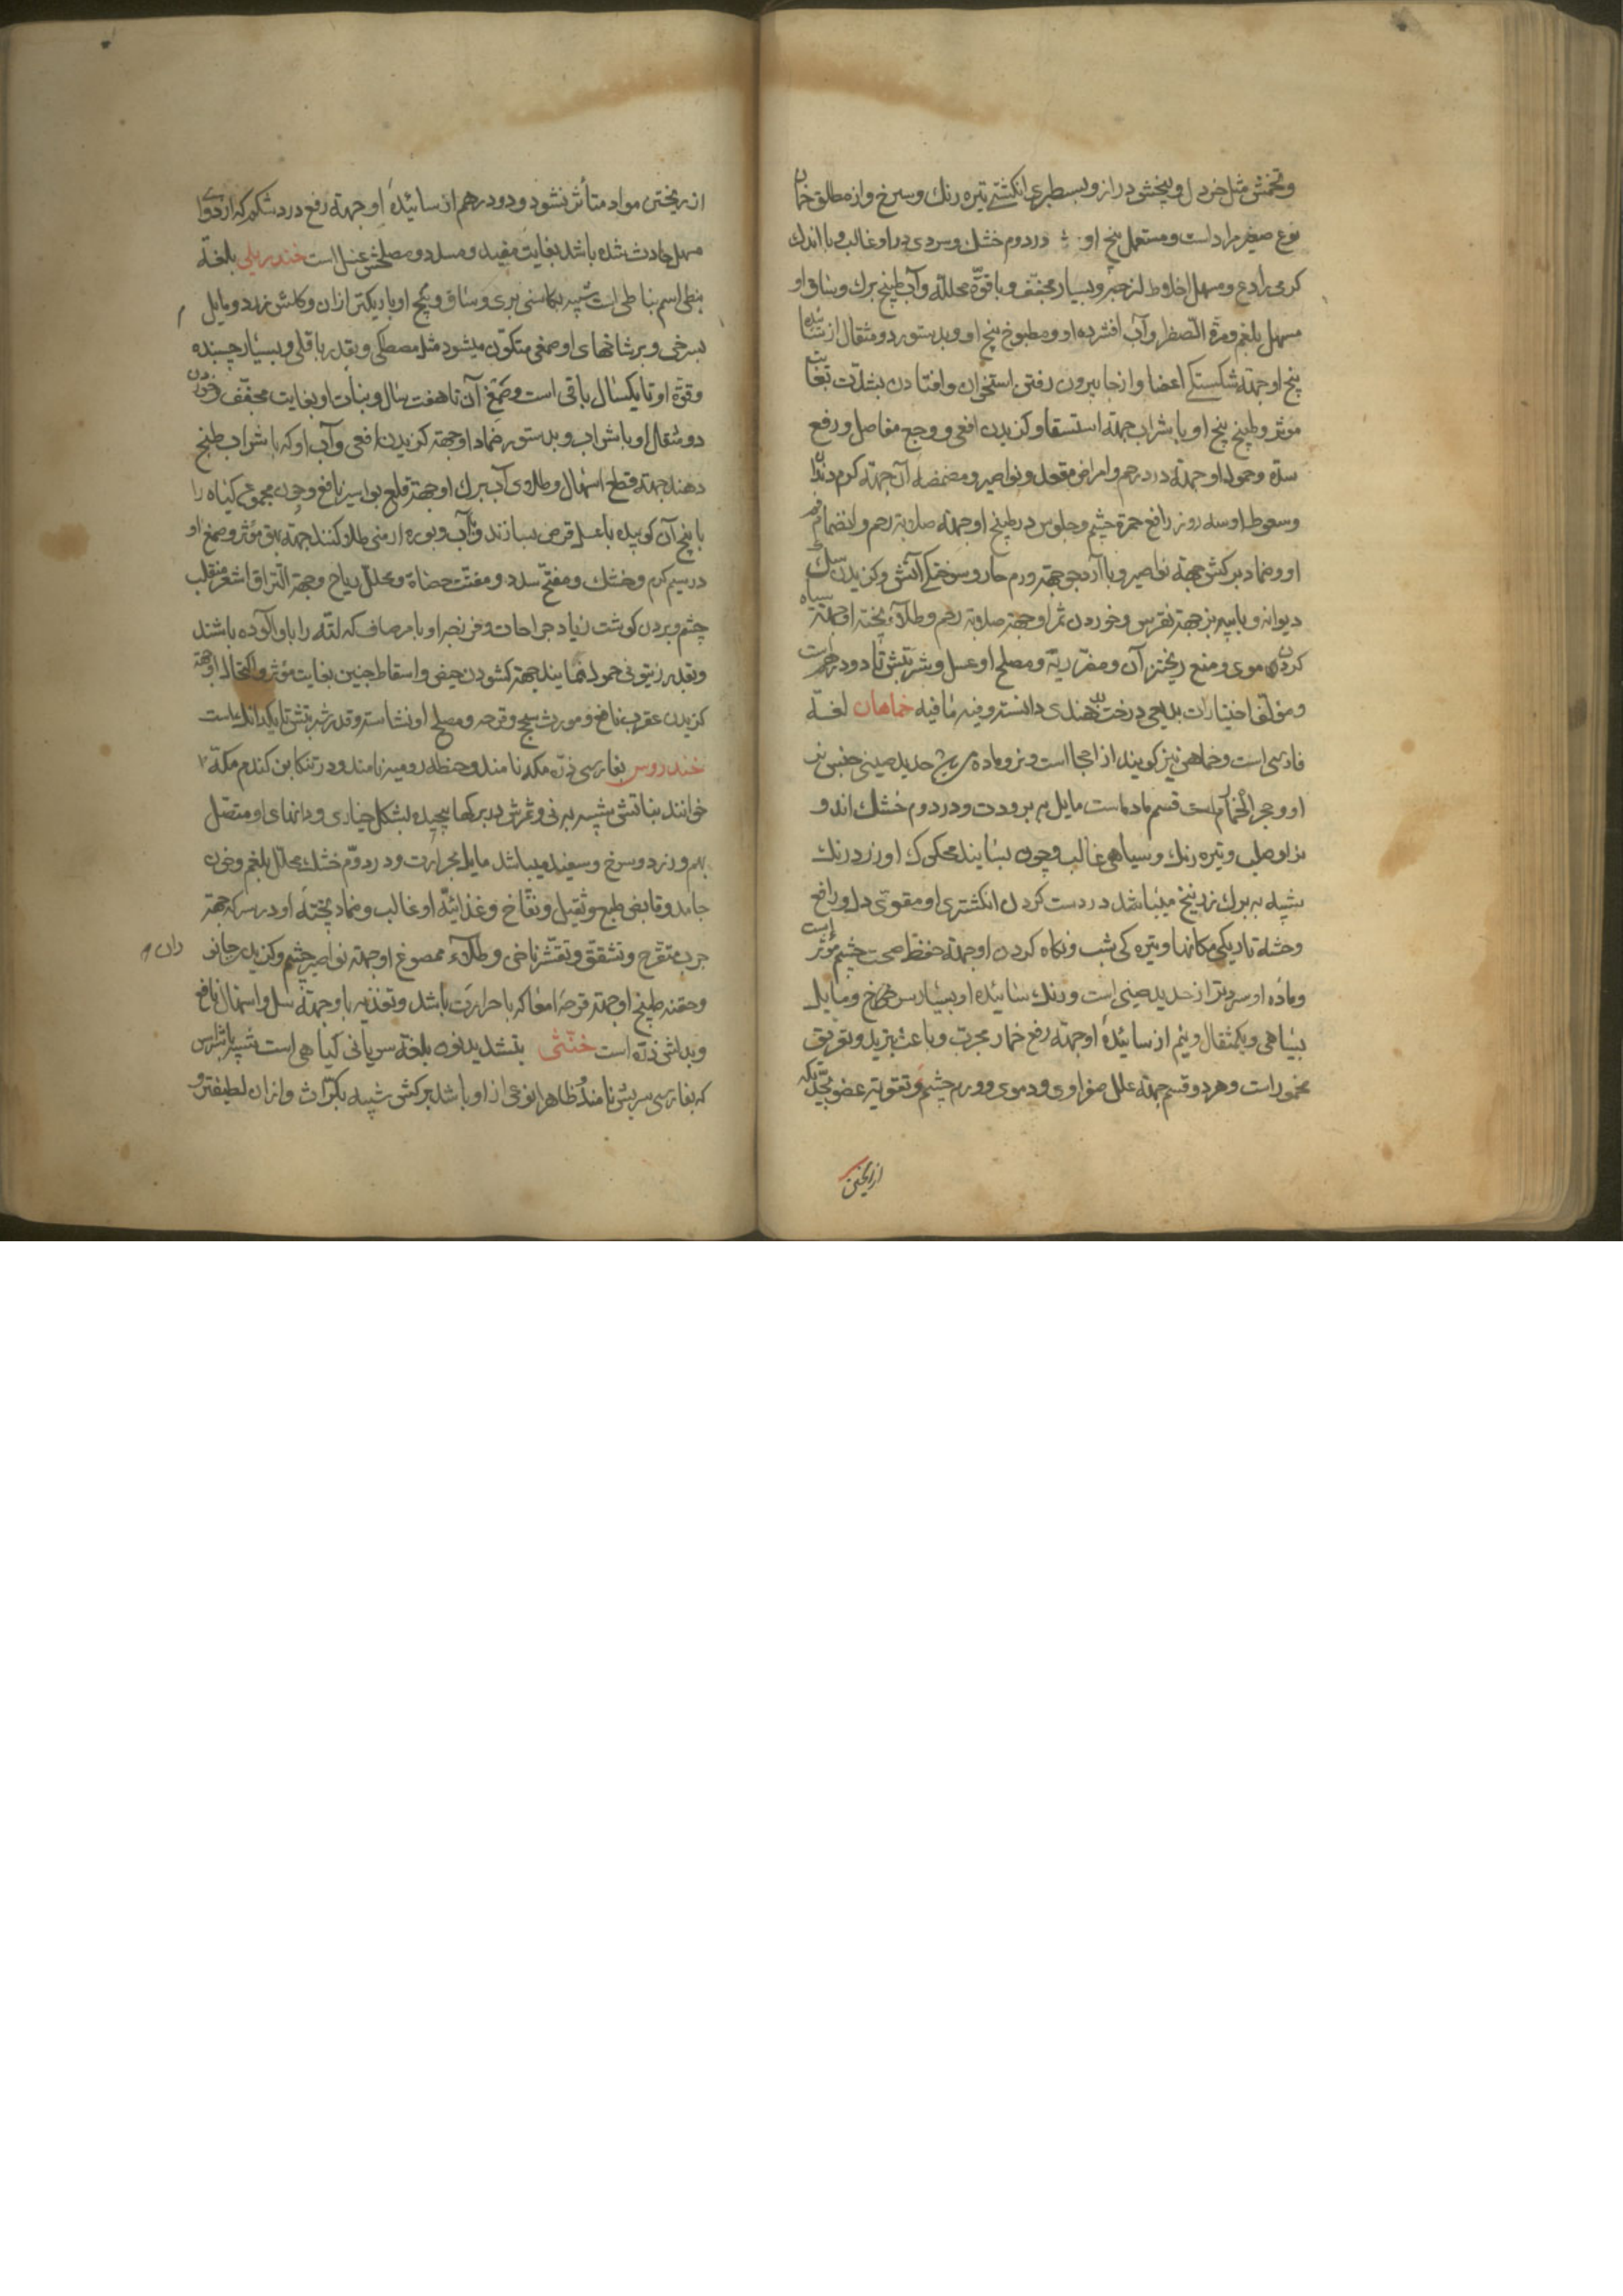 وتخمش مثل خردل و بیخش دراز و بسطبری انکشتی تیره رنك و سرخ و از مطلق خمان
نوع صغیر مراد است و مستعمل بیخ او در دوم خشك و سردی در او غالب و با اندك
کرمی رادع و مسهل اخلاط لزجه و بسیار مجفف و با قوّة محلله و آب طبیخ برك و ساق او
مسهل بلغم و مرة الصفرا و آب افشرده او و مطبوخ بیخ او و بدستور دو مثقال از سائیده
بیخ او جهتة شکستکی اعضا و از جا بیرون رفتن استخوان و افتادن بشدّت بغایت
مؤثر و طبیخ بیخ او با شراب جهتة استسقا و کزیدن افعی و وجع مفاصل و رفع
سدّه و حمول او جهتة درد رحم و امراض مقعد و نواصیر و مضمضه آن جهتة کرم دندان
و سعوط او سه روز رافع حمرة چشم و جلوس در طبیخ او جهتة صلابة رحم و انضمام فم
او و ضماد برکش جهتة نواصیر و با آرد جو جهتة ورم حار و سوختکی آتش و کزیدن سك
دیوانه و با پیه بز جهتة نقرس و خوردن ثمر او جهتة صلابة رحم و طلآء پخته او جهتة سیاه
کردن موی و منع ریختن آن و مضرّ ریّه و مصلح او عسل و شربتش تا دو درهم است
و مؤلف اختیارات بدیعی درخت بل هندی دانسته و فیه مافیه خماهان لغـة
فارسی است و خماهن نیز کویند از احجار است و نر و ماده میباشد حدید صینی جنس نر
او و حجر الخمار است قسم ماده است مایل به برودت و در دوم خشك اند و
نر او صلب و تیره رنك و سیاهی غالب و چون بسایند محکوك او زرد رنك
شبیه به برك زرنیخ میباشد در دست کردن انکشتری او مقوّی دل و رافع
وحشة تاریکی مکانها و تیره کی شب و نکاه کردن او جهتة حفظ صحت چشم مؤثر است
و ماده او سردتر از حدید صینی است و رنك سائیده او بسیار سرخ و مایل
بسیاهی و یکمثقال و نیم از سائیدۀ او جهتة رفع خمار مجرّب و باعث تبرید و تفریق
مخمور است و هر دو قسم جهتة علل صفراوی و دموی و ورم چشم و تقویة عضو بحدّیکه
از ریختن
از ریختن مواد متأثر نشود و دو درهم از سائیدۀ او جهتة رفع درد شکم که از دوای
مسهل حادث شده باشد بغایت مفید و مسدد و مصلحش عسل است خندریلی بلغة
نبطی اسم نباطی است شبیه بکاسنی بری و ساق و بیخ او باریکتر از ان و کلش زرد و مایل
بسرخی و بر شاخهای او صمغی متکوّن میشود مثل مصطکی و بقدر باقلی و بسیار چسبنده
و قوّة او تا یکسال باقی است و صمغ آن تا هفت سال و نبات او بغایت مجفّف و خوردن
دو مثقال او با شراب و بدستور ضماد او جهتة کزیدن افعی و آب او که با شراب طبخ
دهند جهتة قطع اسهال و طلای آب برك او جهتة قلع بواسیر نافع و چون مجموع کیاه را
با بیخ آن کوبیده با عسل قرص سازند و با آب و بوره ارمنی طلا کنند جهتة بهق مؤثر و صمغ او
در سیم کرم و خشك و مفتّح سدد و مفتّت حصاة و محلل ریاح و جهتة التزاق اشعر منقلب
چشم و بردن کوشت زیاد جراحات و فرزجه او با مرصاف که لتّه را باو آلوده باشند
و بقدر زیتونی حمول نمایند جهتة کشودن حیض و اسقاط جنین بغایت مؤثر و اکتحال او جهتة
کزیدن عقرب نافع و مورث سحج و قرحه و مصلح او نشاسته و قدر شربتش تا یکدانك است
خندروس بفارسی ذرّه مکه نامند و حنطه رومیه نامند و در تنکابن کندم مکه
خوانند نباتش شبیه به نی و ثمرش در برکها پیچیده بشکل خیاری و دانهای او متصّل
بهم و زرد و سرخ و سفید میباشد مایل بحرارت و در دوّم خشك محلل بلغم و خون
جامد و قابض طبع و ثقیل و نفّاخ و غذائیّة او غالب و ضماد پختۀ او در سرکه جهتة
جرب متقرح و تشقق و تقشّر ناخن و طلآء ممضوغ او جهتة نواصیر چشم و کزیدن جانو
ران
و حقنه طبیخ او جهتة قرحۀ امعا که با حرارت باشد و تغذیه باو جهتة سل و اسهال نافع
و بدلش ذرّه است خنثی بتشدید نون بلغة سریانی کیاهی است شبیه باشراس
که بفارسی سریش نامند و ظاهرا نوعی از او باشد برکش شبیه بکرّاث و از ان لطیفتر و